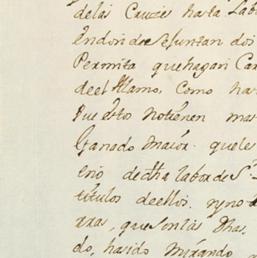 delas Cruces hasta Lab
endonde se juntan dos
Permita quehagan Car
deel Alamo, Como has
que estos notienen mas
Ganado maior. queles
erio dedha labor de S.
titulos deellos. ynos
axas, que son las Dhas.
do, hasido Mirando